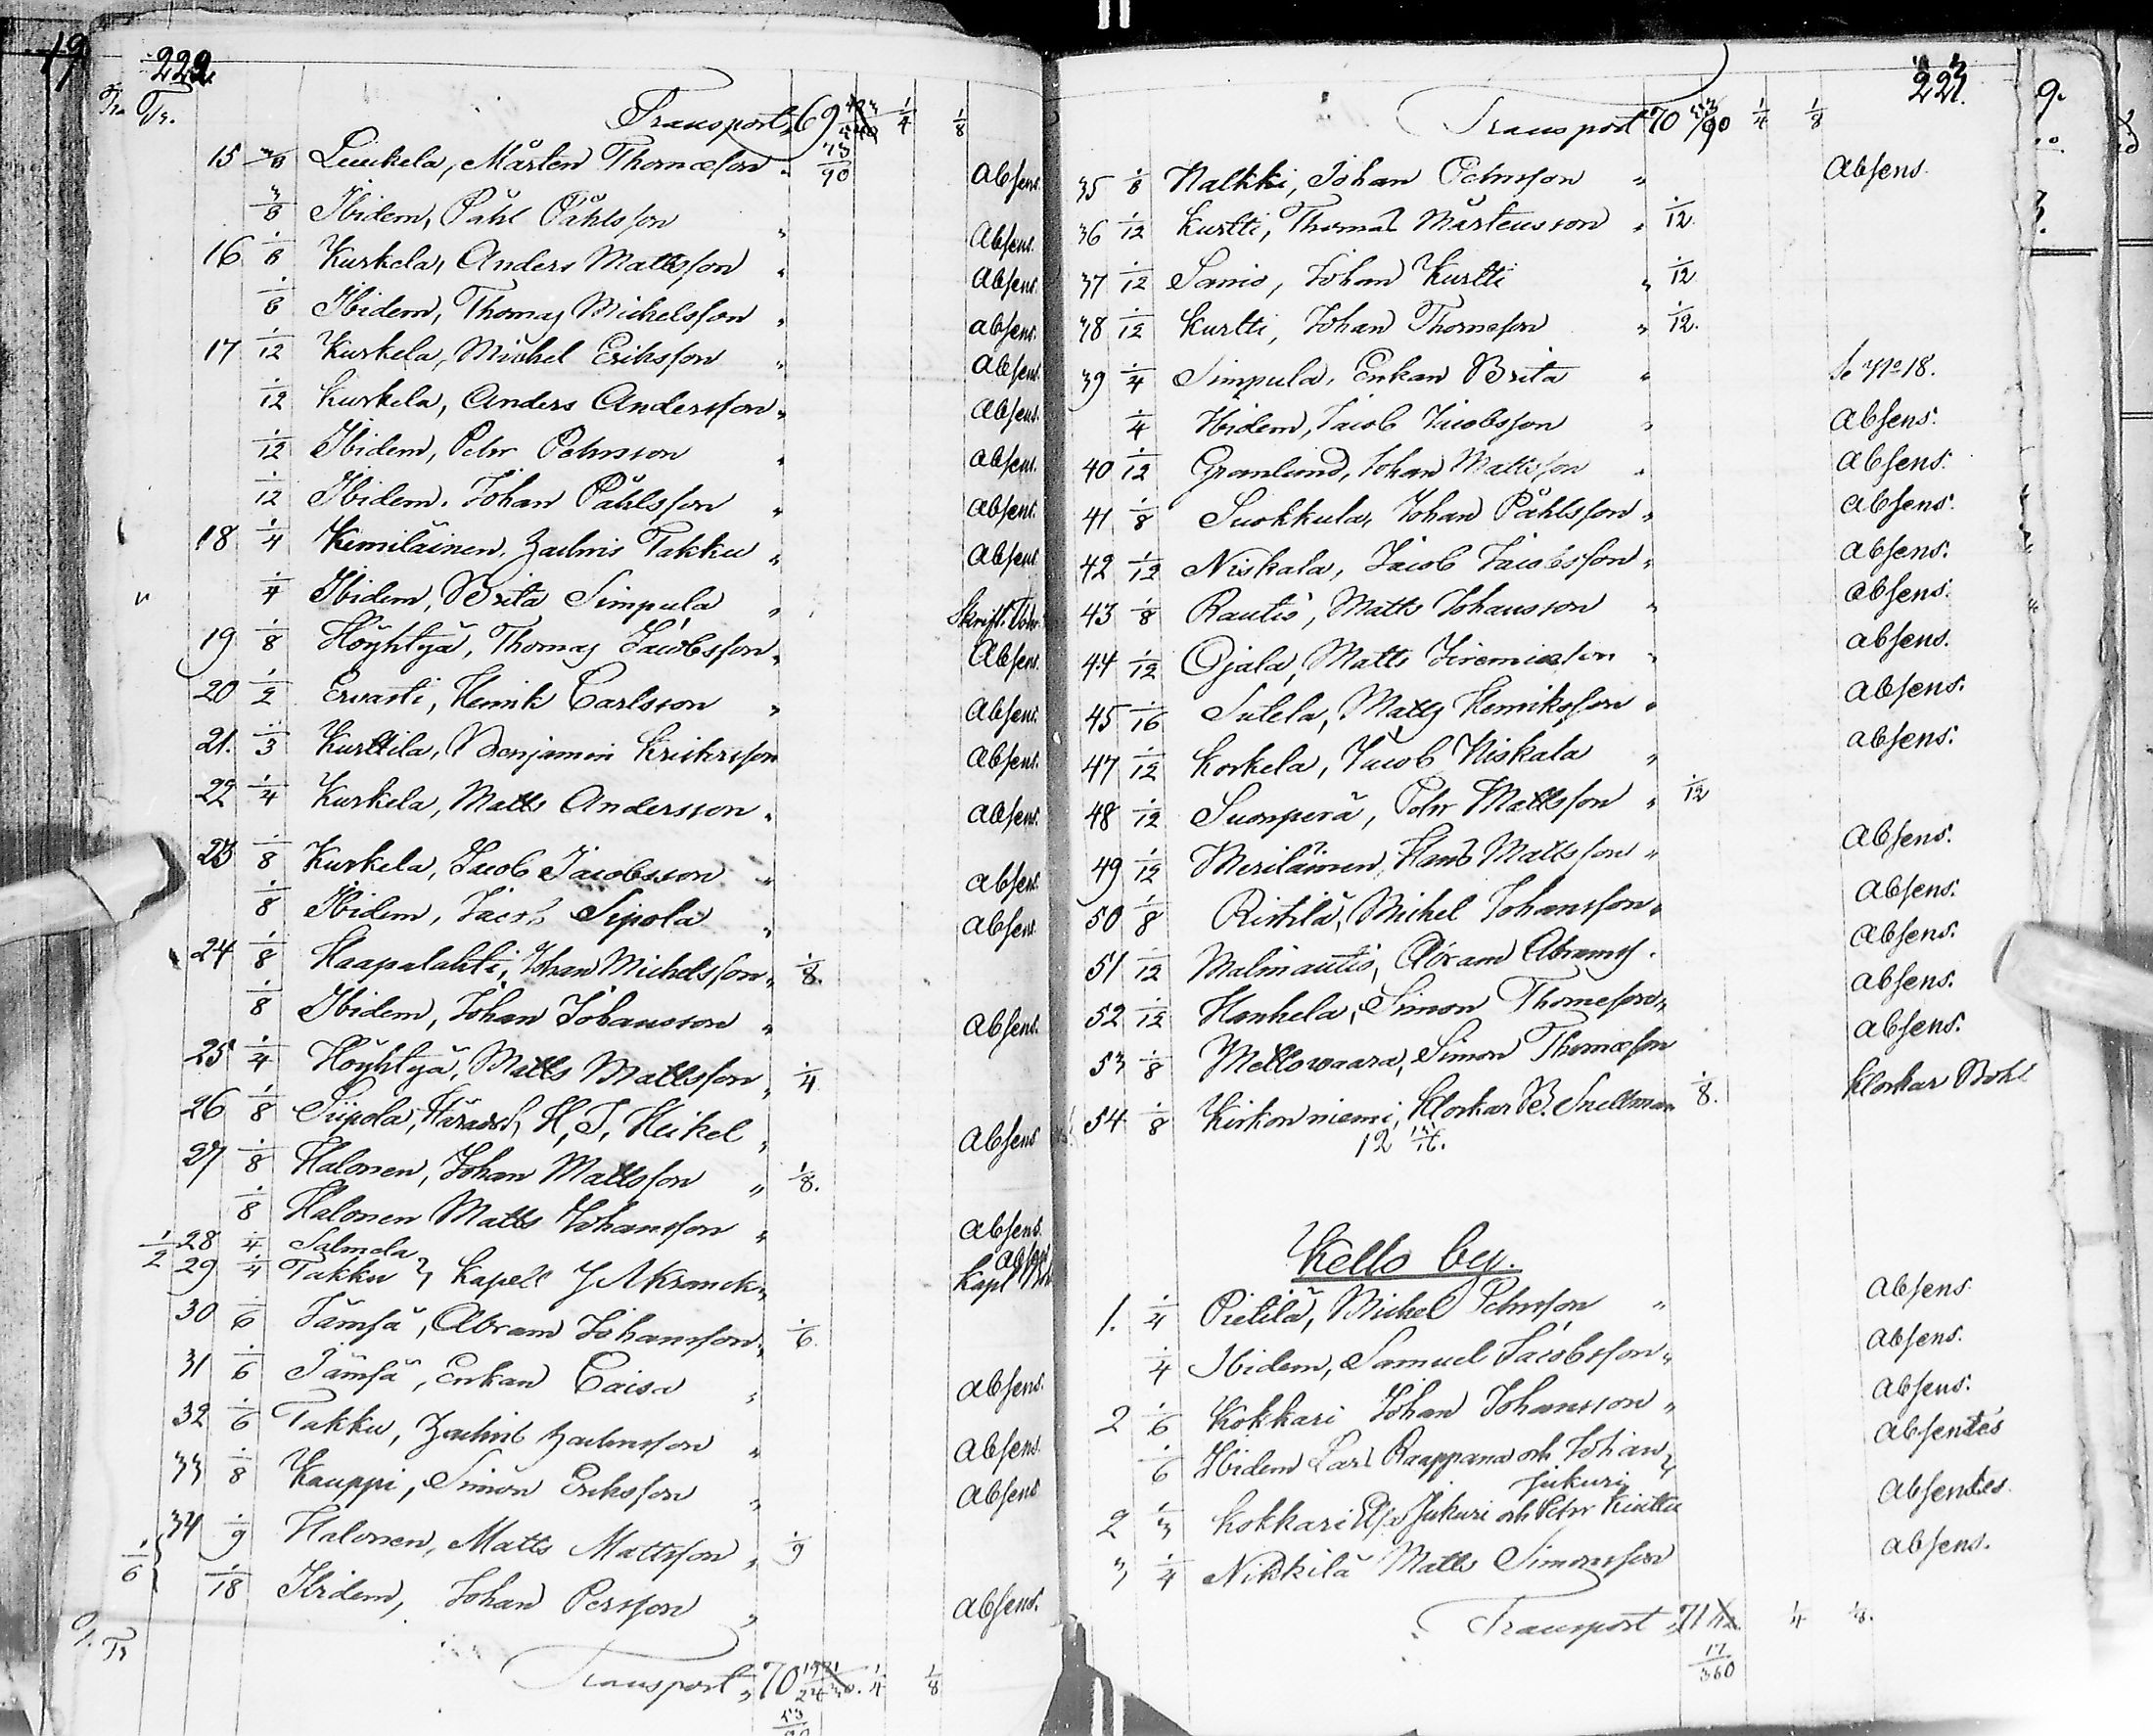 19 222
Transport 69 1/4 1/8
73/90
15 3/8 Liuckela, Mårten Thomæson " Absens.
3/8 Ibidem, Påhl Påhlsson " Absens.
16 1/8 Kurkela, Anders Mattsson " Absens.
1/8 Ibidem, Thomas Michelsson " absens.
17 1/12 Kurkela, Michel Eriksson " Absens.
1/12 Kurkela, Anders Andersson " Absens.
1/12 Ibidem, Pehr Pehrsson " absens.
1/12 Ibidem, Johan Påhlsson " absens.
18 1/4 Kemiläinen, Zachris Takku " Absens
1/4 Ibidem, Brita Simpula " Skrift.
19 1/8 Höyhtyä, Thomas Jacobsson " Absens.
20 1/2 Ervasti, Henrik Carlsson " Absens.
21. 1/3 Kurttila, Benjamin Erikrsson Absens.
22 1/4 Kurkela, Matts Andersson " absens.
23 1/8 Kurkela, Jacob Jacobsson " absens.
1/8 Ibidem, Jacob Sipola " absens
24 1/8 Haapalahti, Johan Michelsson " 1/8.
1/8 Ibidem, Johan Johansson " absens.
25 1/4 Höyhtyä, Matts Mattsson " 1/4
26 1/8 Siipola, Häradsh H. J. Heikel " absens
27 1/8 Halonen, Johan Mattsson " 1/8.
1/8 Halonen Matts Johansson " absens.
1/2 28 1/4 Salmela absens
29 1/4 Takku } Kapell J A Kranck " Kapl
30 1/6 Jämsä, Abram Johansson " 1/6.
31 1/6 Jämsä, Enkan Caisa " absens.
32 1/6 Takku, Zachris Zachrisson " Absens.
33 1/8 Kauppi, Simon Eriksson " absens
1/6 34 1/9 Halonen, Matts Mattsson " 1/9
1/18 Ibidem, Johan Persson " absens.
Transport " 70 1/4 1/8
53/90
223
Transport 70 53/90 1/4 1/8
35 1/8 Halkki, Johan Pehrsson " Absens.
36 1/12 Kurtti, Thomas Mårtensson " 1/12.
37 1/12 Sanio, Johan Kurtti " 1/12
38 1/12 Kurtti, Johan Thomeson " 1/12.
39 1/4 Simpula, Enkan Brita " Se No 18.
1/4 Ibidem, Jacob Jacobsson " absens.
40 1/12 Grönlund, Johan Mattsson " absens.
41 1/8 Suokkula, Johan Påhlsson " absens.
42 1/12 Niskala, Jacob Jacobsson " absens.
43 1/8 Rautio, Matts Johansson " absens.
44 1/12 Ojala, Matts Jeremiæson " absens.
45 1/16 Sutela, Matts Henriksson " absens.
47 1/12 Korkela, Jacob Niskala " absens.
48 1/12 Suonperä, Pehr Mattsson " 1/12
49 1/12 Meriläinen, Hans Mattsson " Absens.
50 1/8 Ristilä, Michel Johansson " Absens.
51 1/12 Malinautio, Abram Abrams. absens.
52 1/12 Hankela, Simon Thomeson " absens.
53 1/8 Mettovaara, Simon Thomæson absens.
54 1/8 Kirkonniemi, Klockar B. Snellman 1/8. Klockar Bohl
Kello by.
1. 1/4 Pietilä, Michel Pehrsson " absens.
1/4 Ibidem, Samuel Jacobsson " absens.
2 1/6 Kokkari Johan Johansson " absens.
1/6 Ibidem Lars Raappana och Johan Absentes
Jukuri "
2 1/3 Kokkari Jukuri och Pehr Kiuttu Absentes.
3 1/4 Nikkilä Matts Simonsson absens.
Transport " 71 1/4 1/8.
17/360